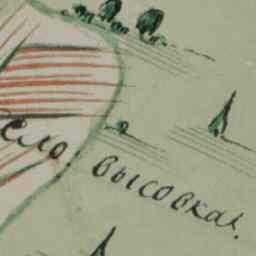 сло. высовка.